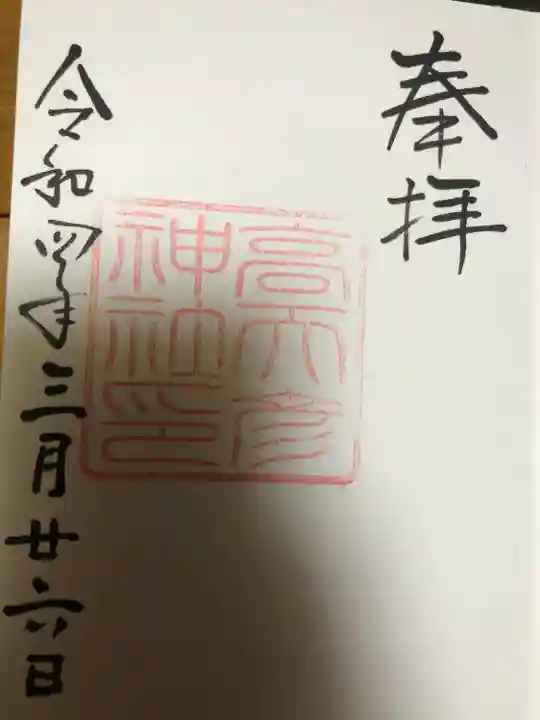 奉拝
高天彦
神社印
令和四年三月廿六日